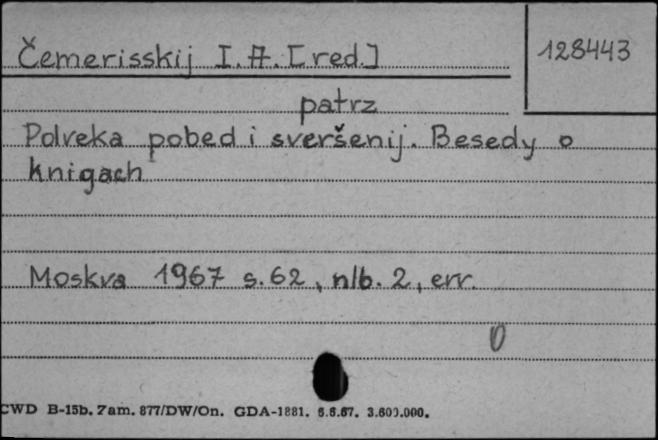 Čemerisskij I. A. [red.]
128443
patrz
Polveka pobed i sveršenij. Besedy o
knigach
Moskva 1967 s. 62, nlb. 2, err.
CWD B-15b. Zam. 877/DW/On. GDA-1881. 6.6.67. 3.600.000.